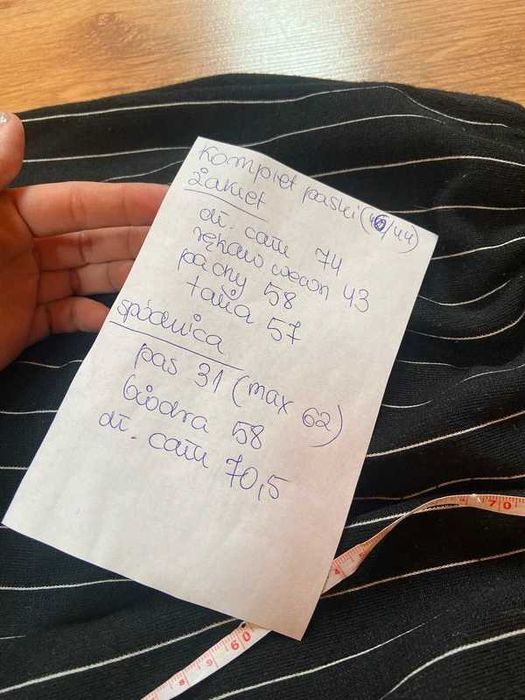 Komplet paski (46/44)
Żakiet
dł. całk 74
rękaw wewn 43
pachy 58
talia 57
Spódnica
pas 31 (max 62)
biodra 58
dł. całk 70,5
70
60